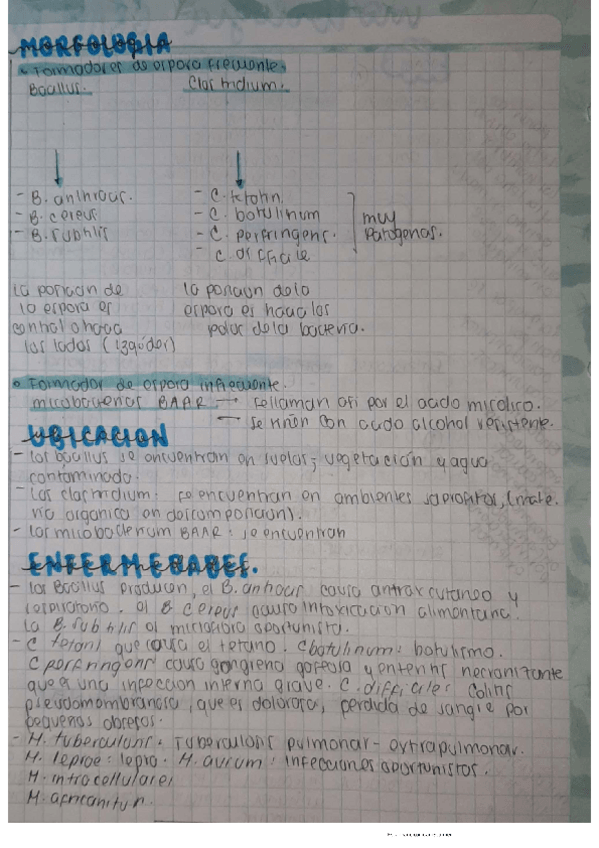 MORFOLOGIA
• Formadores de espora frecuente.
Bacillus. Clostridium.
- B. anthracis. - C. tetani
- B. cereus - C. botulinum muy
- B. subtilis - C. perfringens. patogenas.
- C. difficile
la posicion de la posicion de la
la espora es espora es hacia los
central o hacia polos de la bacteria.
los lados (izq o der)
• Formador de espora infrecuente.
micobacterias BAAR → se llaman asi por el acido micolico.
se tiñen con acido alcohol resistente.
UBICACION
- los bacillus se encuentran en suelos, vegetación y agua
contaminada.
- Los clostridium: se encuentran en ambientes saprofitos, (mate-
ria organica en descomposicion).
- los micobacterium BAAR: se encuentran
ENFERMEDADES.
- los Bacillus producen, el B. anthracis causa antrax cutaneo y
respiratorio. el B cereus causa intoxicacion alimentaria.
la B. subtilis es microflora oportunista.
- C tetani que causa el tetano. C botulinum: botulismo.
C perfringens causa gangrena gaseosa y enteritis necronitante
que es una infeccion interna grave. C. difficile: Colitis
pseudomembranosa, que es dolorosa, perdida de sangre por
pequeños abscesos.
- M. tuberculosis: Tuberculosis pulmonar - extrapulmonar.
M. leprae: lepra. M. avium: infecciones oportunistas.
M. intracellulare
M. africanum.